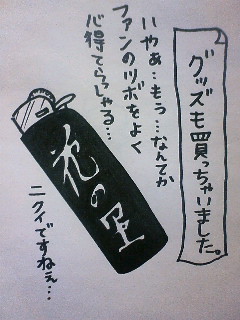 グッズも買っちゃいました。
いやぁ…もう…なんてか
ファンのツボをよく
心得てらっしゃる…
花の里
ニクイですねぇ…